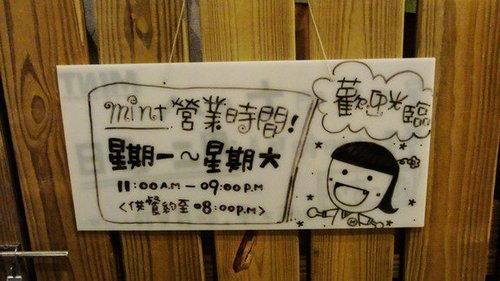 mint 營業時間!
星期一~星期六
11:00A.M-09:00P.M
<供餐約至08:00P.M>
歡迎光臨